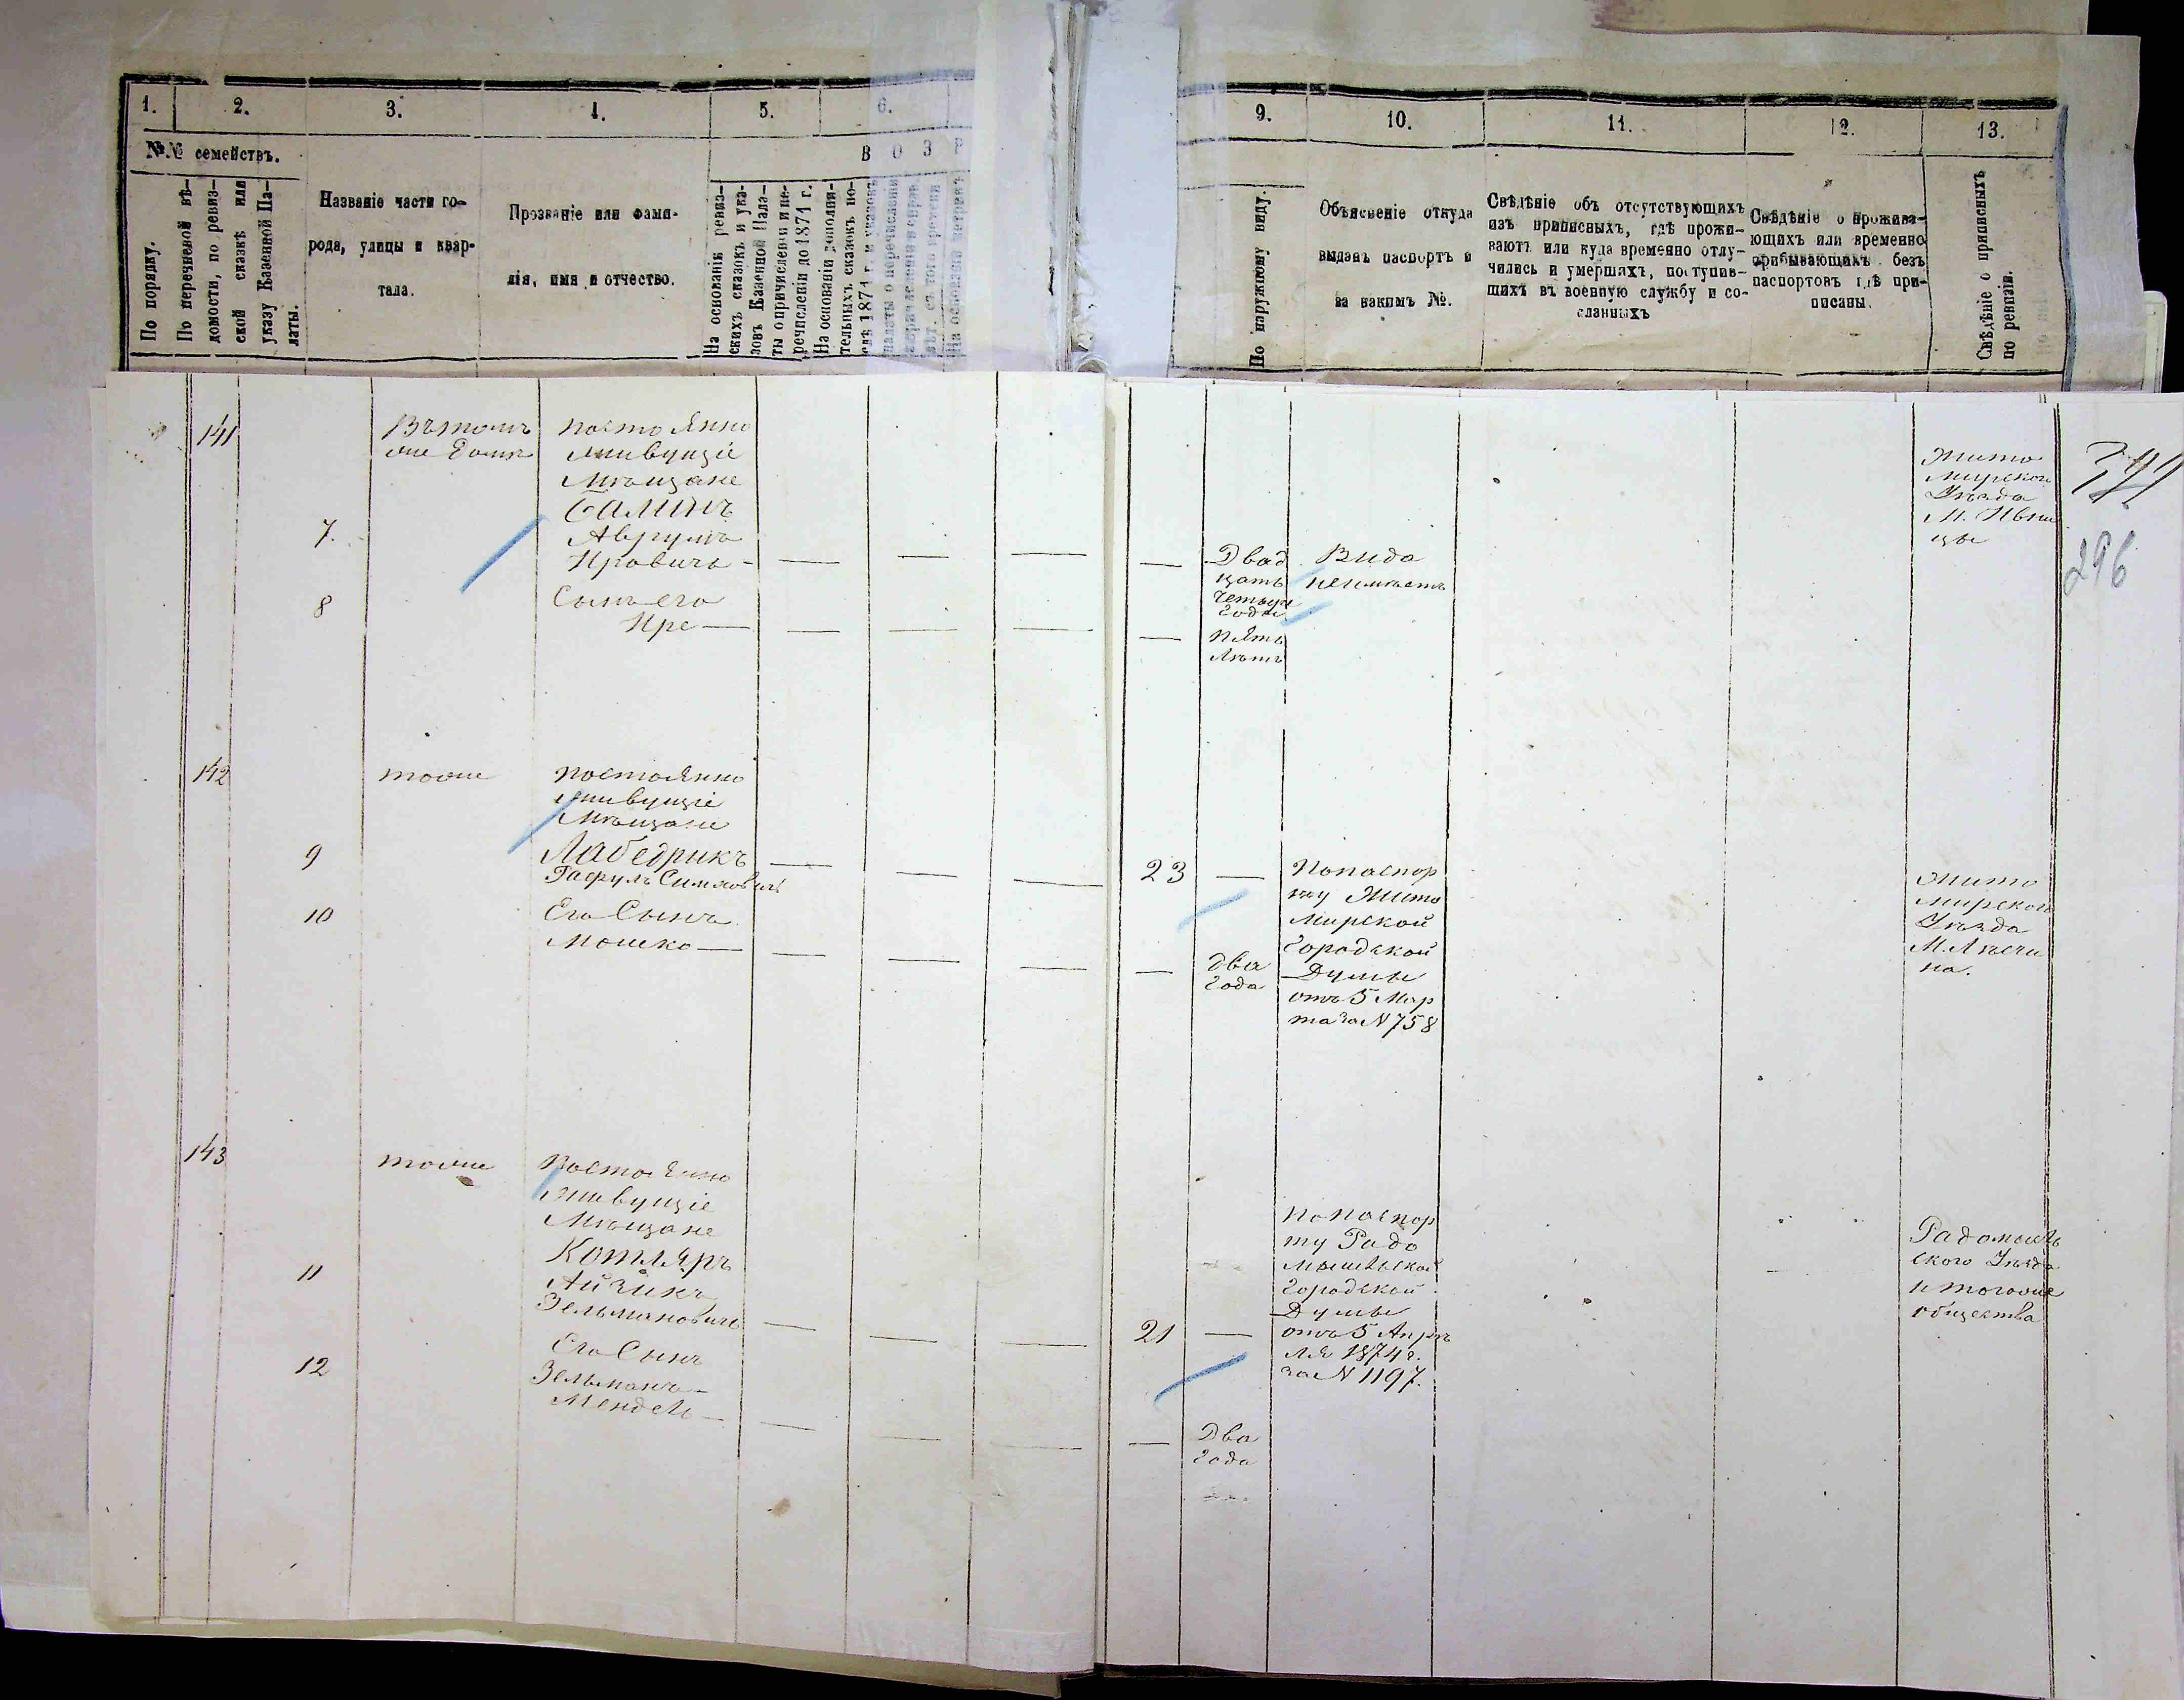 1.
2.
3.
4.
5.
6.
№№ семействъ.
В О З Р
По порядку.
По перечневой вѣ-
домости, по ревиз-
ской сказкѣ или
указу Казенной Па-
латы.
Названіе части го-
рода, улицы и квар-
тала.
Прозваніе или фами-
лія, имя и отчество.
На основаніи ревиз-
скихъ сказокъ и ука-
зовъ Казенной Пала-
ты о причисленіи и пе-
речисленіи до 1871 г.
На основаніи дополни-
тельныхъ сказокъ по-
слѣ 1871 г. и указовъ
палаты о перечисленіи
На основаніи метрикъ
9.
10.
11.
12.
13.
По наружному виду.
Объясненіе откуда
выданъ паспортъ и
за какимъ №.
Свѣдѣніе объ отсутствующихъ
изъ приписныхъ, гдѣ прожи-
ваютъ или куда временно отлу-
чились и умершихъ, поступив-
шихъ въ военную службу и со-
сланныхъ
Свѣдѣніе о прожива-
ющихъ или временно
прибывающихъ безъ
паспортовъ гдѣ при-
писаны.
Свѣдѣніе о приписныхъ
по ревизіи.
141
Въ томъ
же домѣ
постоянно
живущіе
Мѣщане
7.
Аврумъ
8
Сынъ его
Двад
цать
четыре
года
Вида
неимѣетъ
пять
лѣтъ
Жито
мирского
Уѣзда
М. Ивни
цы
296
142
тоже
постоянно
живущіе
Мѣщане
9
Лабедрикъ
10
Его Сынъ
Мошко
23
два
года
Попаспор
ту Жито
мирской
городской
Думы
отъ 5 Мар
та за N 758
Жито
мирского
Уѣзда
М. Лѣсчи
на.
143
тоже
Постоянно
живущіе
Мѣщане
11
Котляръ
Айзикъ
Зельмановичъ
12
Его Сынъ
Зельманъ-
Мендель
21
попаспор
ту Радо
мысльской
городской
Думы
отъ 5 Апрѣ
ля 1874 г.
за N 1197.
Два
года
Радомысль
ского Уѣзда
и тогоже
общества